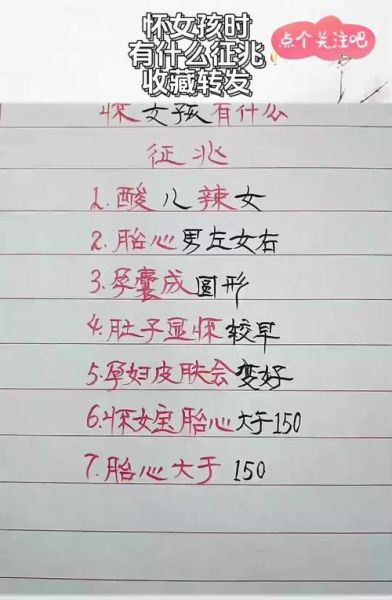 怀女孩时
有什么征兆
收藏转发
点个关注吧
怀女孩有什么
征兆
1.酸儿辣女
2.胎心男左女右
3.孕囊成圆形
4.肚子显怀较早
5.孕妇皮肤会变好
6.怀女宝胎心大于150
7.胎心大于150